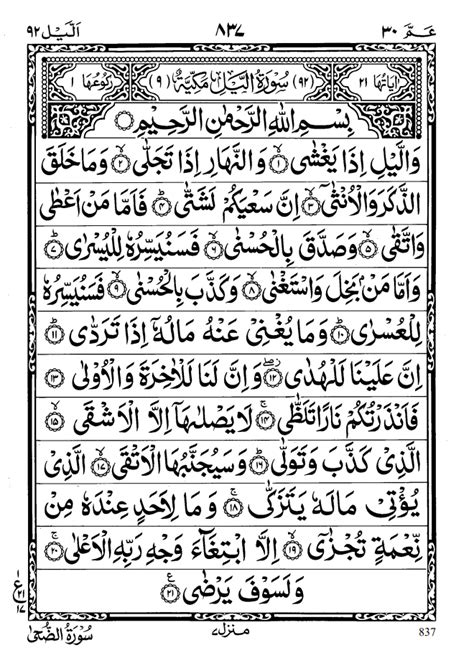 عَمَّ ٣٠
٨٣٧
اَلَّيْل ٩٢
اٰيَاتُهَا ٢١
(٩٢) سُوْرَةُ الَّيْلِ مَكِّيَّةٌ (٩)
رُكُوْعُهَا ١
بِسْمِ اللّٰهِ الرَّحْمٰنِ الرَّحِيْمِ
وَالَّيْلِ اِذَا يَغْشٰى ۙ‏﴿۱﴾ وَالنَّهَارِ اِذَا تَجَلّٰى ۙ‏﴿۲﴾ وَمَا خَلَقَ
الذَّكَرَ وَالْاُنْثٰۤى ۙ‏﴿۳﴾ اِنَّ سَعْيَكُمْ لَشَتّٰى ؕ‏﴿۴﴾ فَاَمَّا مَنْ اَعْطٰى
وَاتَّقٰى ۙ‏﴿۵﴾ وَصَدَّقَ بِالْحُسْنٰى ۙ‏﴿۶﴾ فَسَنُيَسِّرُهٗ لِلْيُسْرٰى ؕ‏﴿۷﴾
وَاَمَّا مَنْۢ بَخِلَ وَاسْتَغْنٰى ۙ‏﴿۸﴾ وَكَذَّبَ بِالْحُسْنٰى ۙ‏﴿۹﴾ فَسَنُيَسِّرُهٗ
لِلْعُسْرٰى ؕ‏﴿۱۰﴾ وَمَا يُغْنِىْ عَنْهُ مَالُهٗۤ اِذَا تَرَدّٰى ؕ‏﴿۱۱﴾
اِنَّ عَلَيْنَا لَلْهُدٰى ۖ‏﴿۱۲﴾ وَاِنَّ لَنَا لَلْاٰخِرَةَ وَالْاُوْلٰى ‏﴿۱۳﴾
فَاَنْذَرْتُكُمْ نَارًا تَلَظّٰى ۚ‏﴿۱۴﴾ لَا يَصْلٰىهَاۤ اِلَّا الْاَشْقَى ۙ‏﴿۱۵﴾
الَّذِىْ كَذَّبَ وَتَوَلّٰى ؕ‏﴿۱۶﴾ وَسَيُجَنَّبُهَا الْاَتْقَى ۙ‏﴿۱۷﴾ الَّذِىْ
يُؤْتِىْ مَالَهٗ يَتَزَكّٰى ۚ‏﴿۱۸﴾ وَمَا لِاَحَدٍ عِنْدَهٗ مِنْ
نِّعْمَةٍ تُجْزٰٓى ۙ‏﴿۱۹﴾ اِلَّا ابْتِغَآءَ وَجْهِ رَبِّهِ الْاَعْلٰى ۚ‏﴿۲۰﴾
وَلَسَوْفَ يَرْضٰى ‏﴿۲۱﴾
١
ع
٢١
١٧
سُوْرَةُ الضُّحٰى
منزل ٧
837